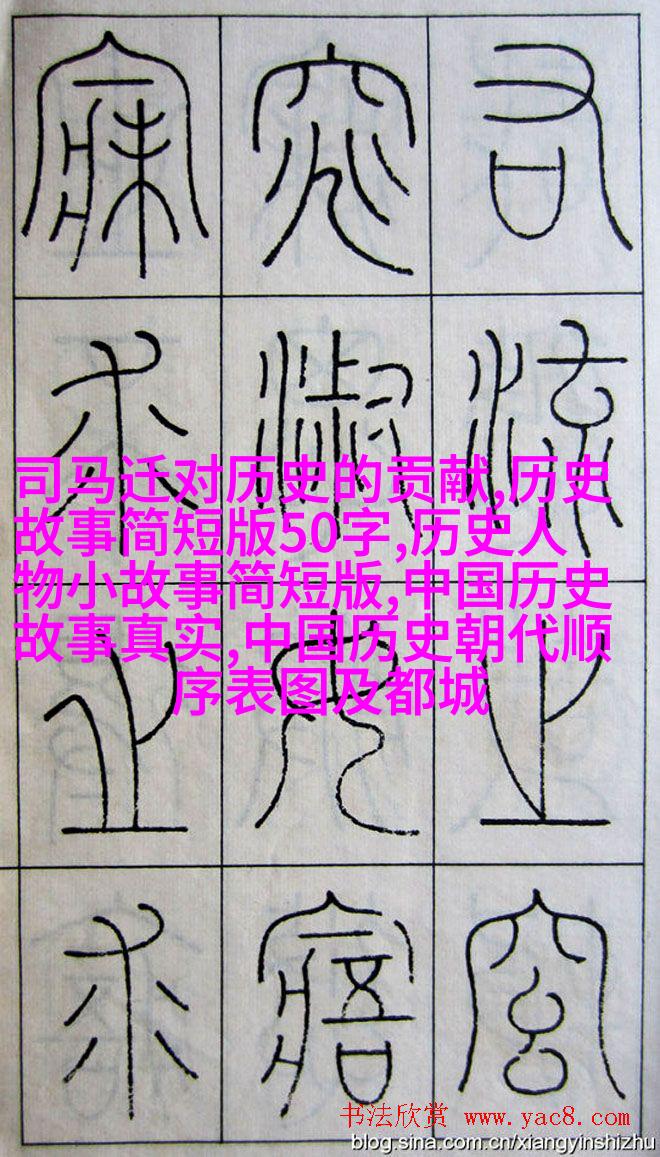 右流之窈
窕淑女寤
寐求之求
司马迁对历史的贡献,历史
故事简短版50字,历史人
物小故事简短版,中国历史
故事真实,中国历史朝代顺
序表图及都城
书法欣赏 www.yac8.com
blog.sina.com.cn/xiangyinshizhu